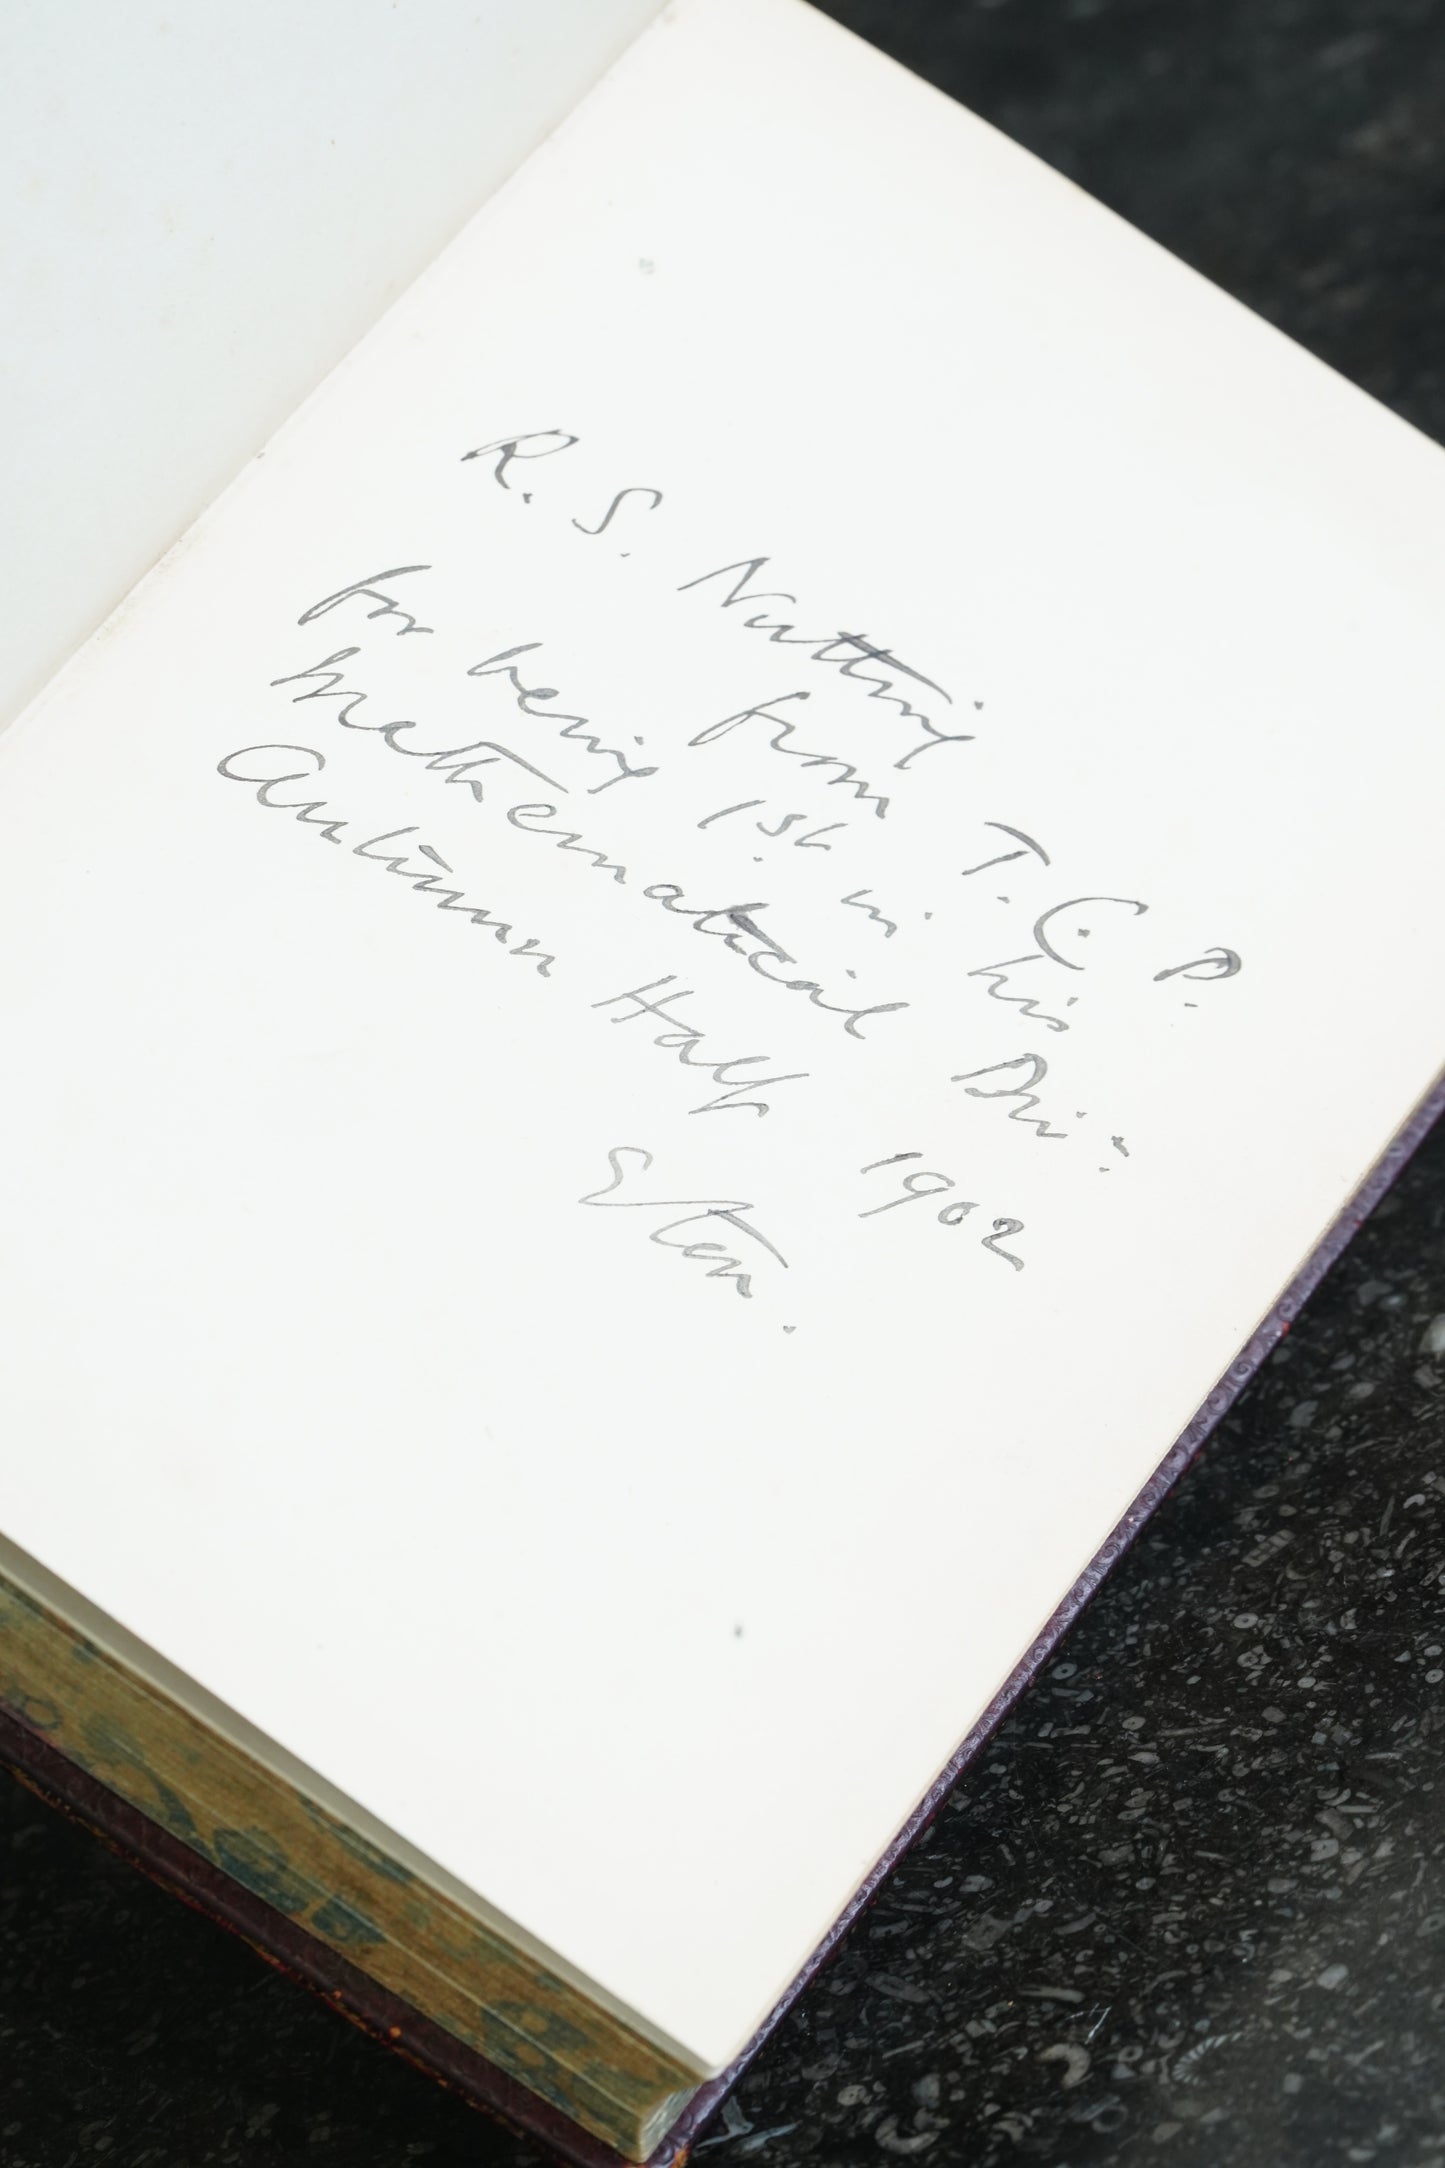 R. S. Nutting
from T. C. P.
for being 1st. in his
Mathematical Div:n
Autumn Half 1902
Eton.